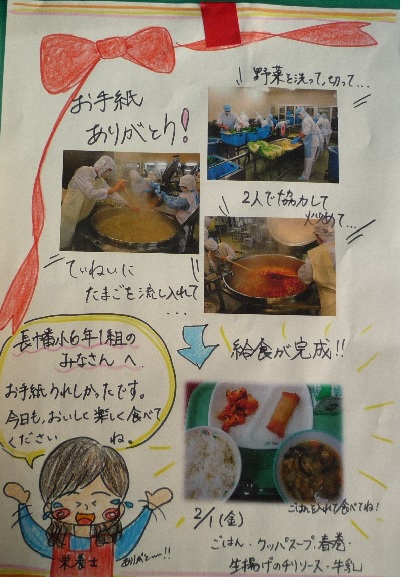 お手紙
ありがとう!
野菜を洗って,切って…
2人で協力して
炒めて…
ていねいに
たまごを流し入れて
…
給食が完成!!
長幡小6年1組の
みなさんへ
お手紙うれしかったです。
今日も、おいしく楽しく食べて
くださいね。
栄養士
ありがとー!!
ごはんを入れて食べてね!
2/1(金)
ごはん・クッパスープ・春巻・
生揚げのチリソース・牛乳